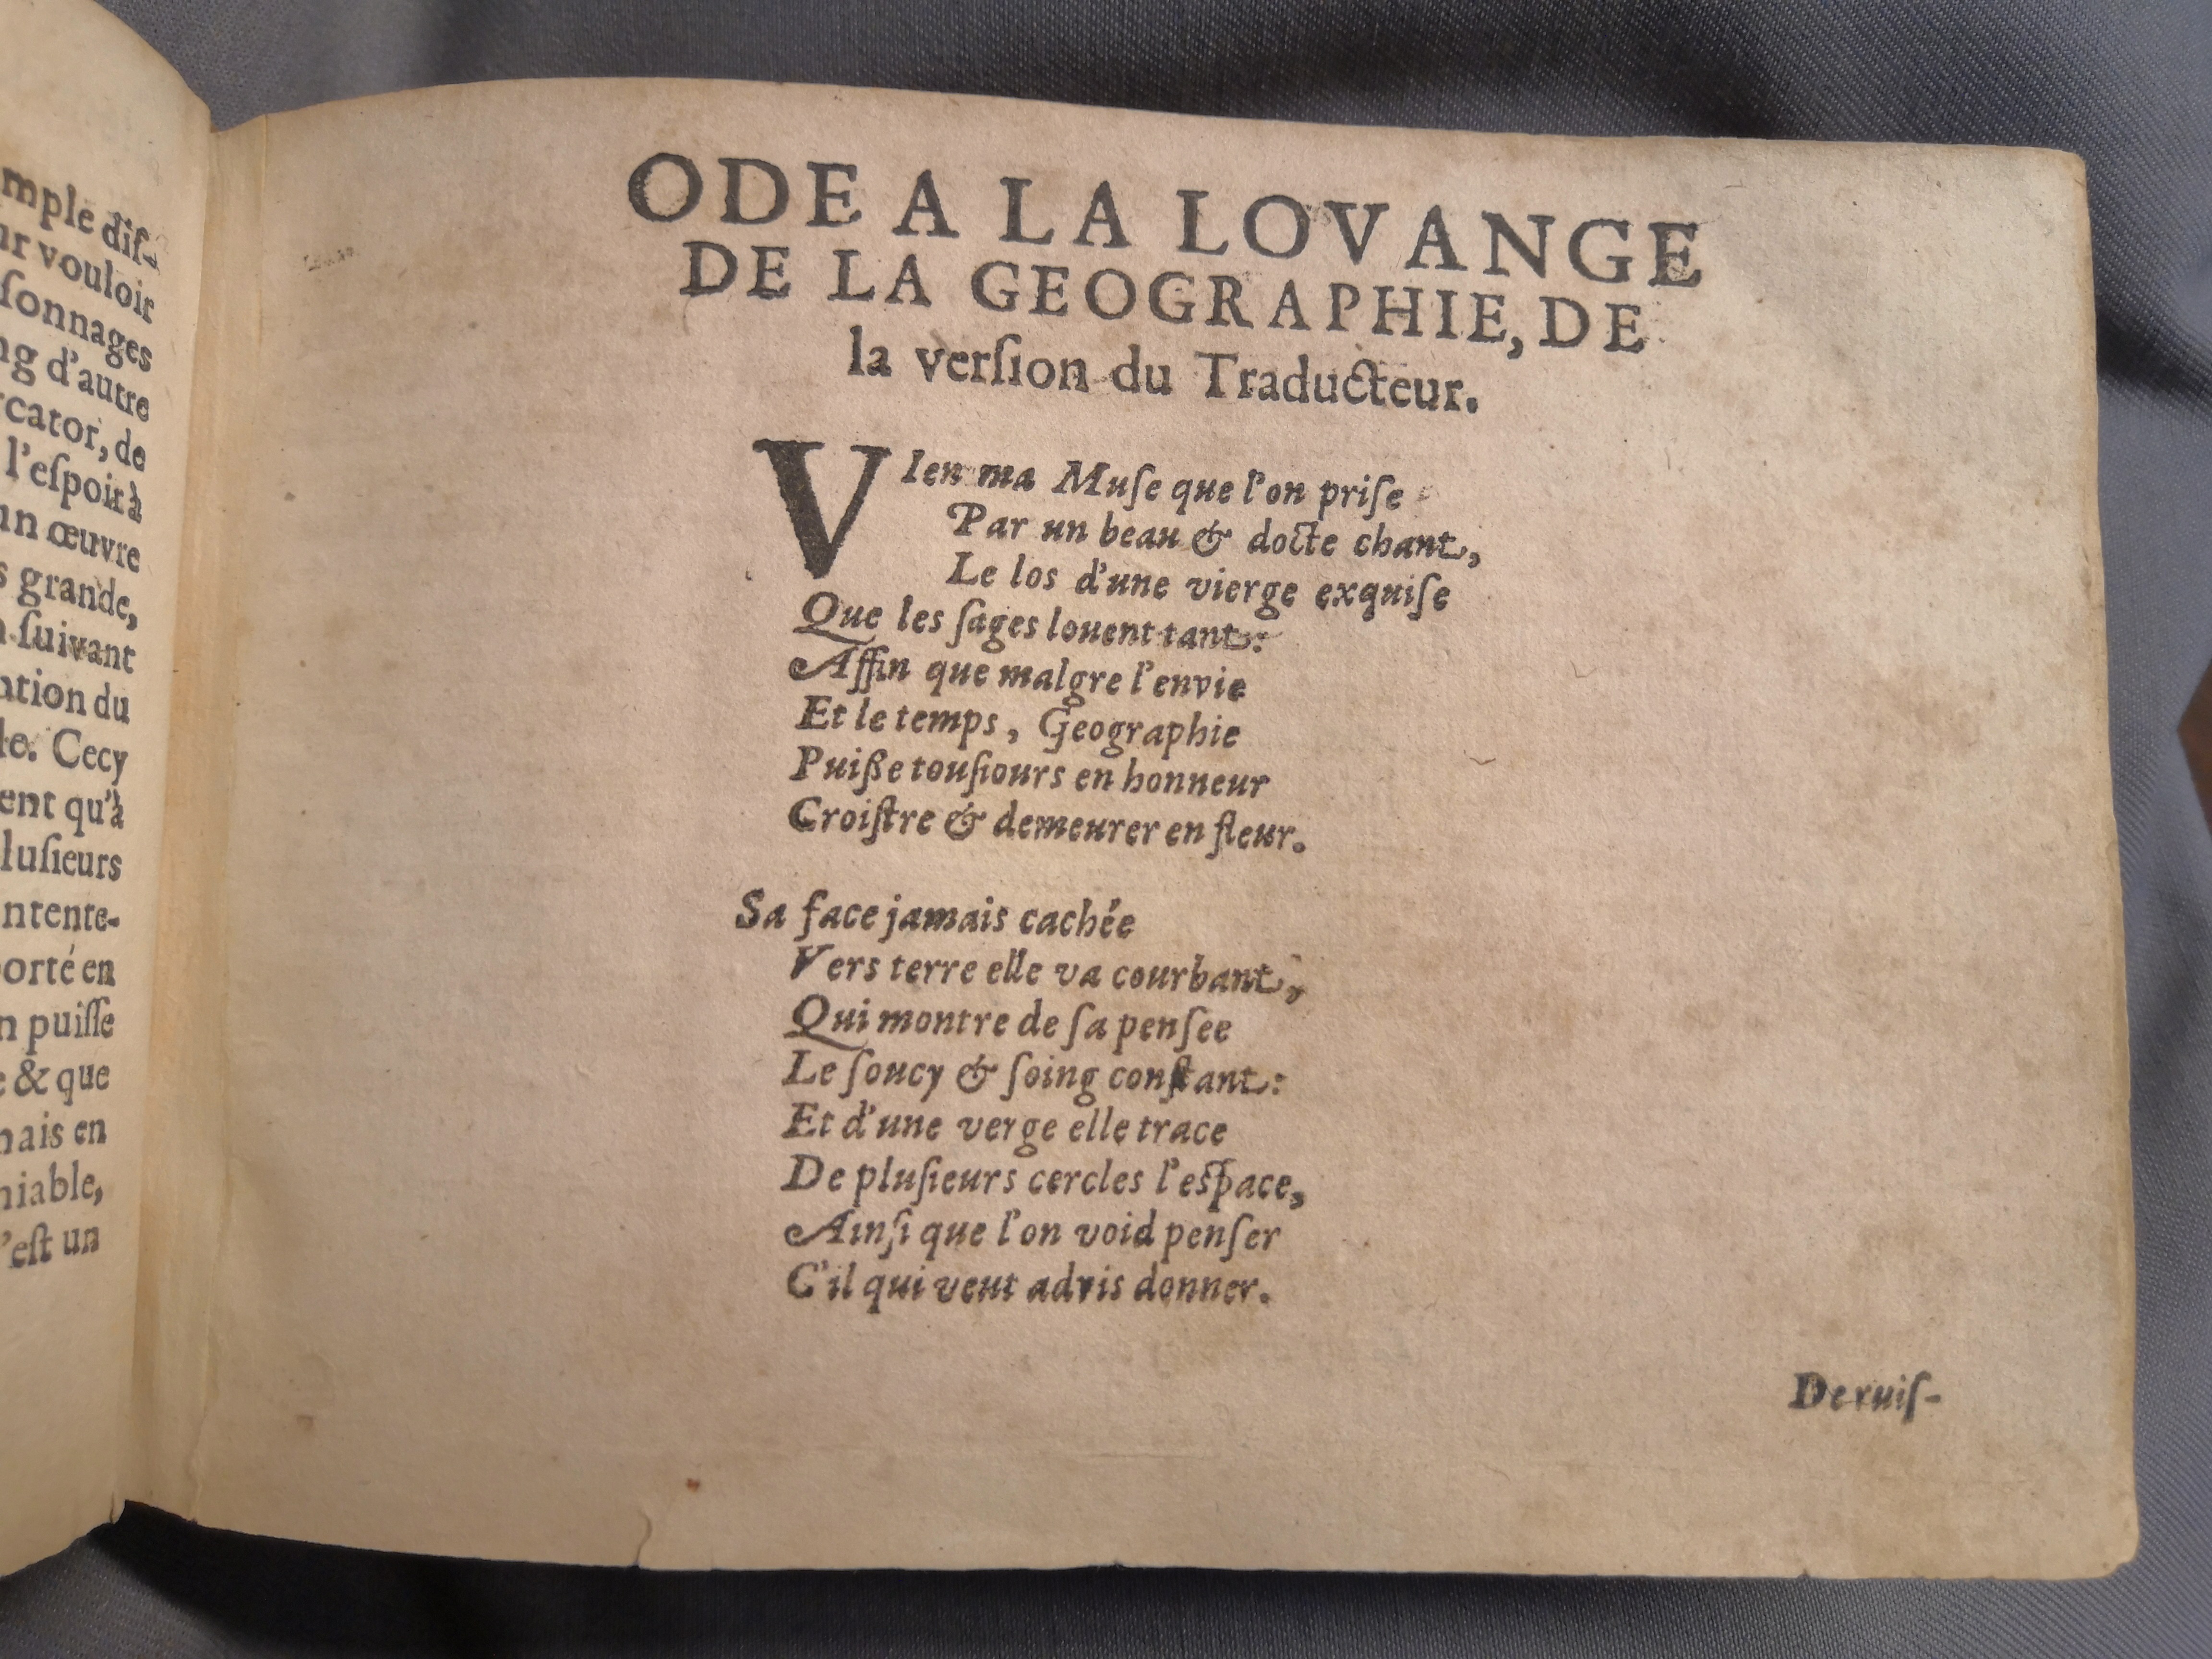 mple diſ-
ur vouloir
ſonnages
ng d'autre
cator, de
l'eſpoir à
un œuvre
s grande,
ſuivant
ntion du
le. Cecy
ent qu'à
luſieurs
ntente-
porté en
n puiſſe
e & que
mais en
niable,
'eſt un
ODE A LA LOVANGE
DE LA GEOGRAPHIE, DE
la verſion du Traducteur.
VIen ma Muſe que l'on priſe
Par un beau & docte chant,
Le los d'une vierge exquiſe
Que les ſages louent tant:
Affin que malgre l'envie
Et le temps, Geographie
Puiße touſiours en honneur
Croiſtre & demeurer en fleur.
Sa face jamais cachée
Vers terre elle va courbant,
Qui montre de ſa penſee
Le ſoucy & ſoing conſtant:
Et d'une verge elle trace
De pluſieurs cercles l'eſpace,
Ainſi que l'on void penſer
C'il qui veut advis donner.
De ruiſ-